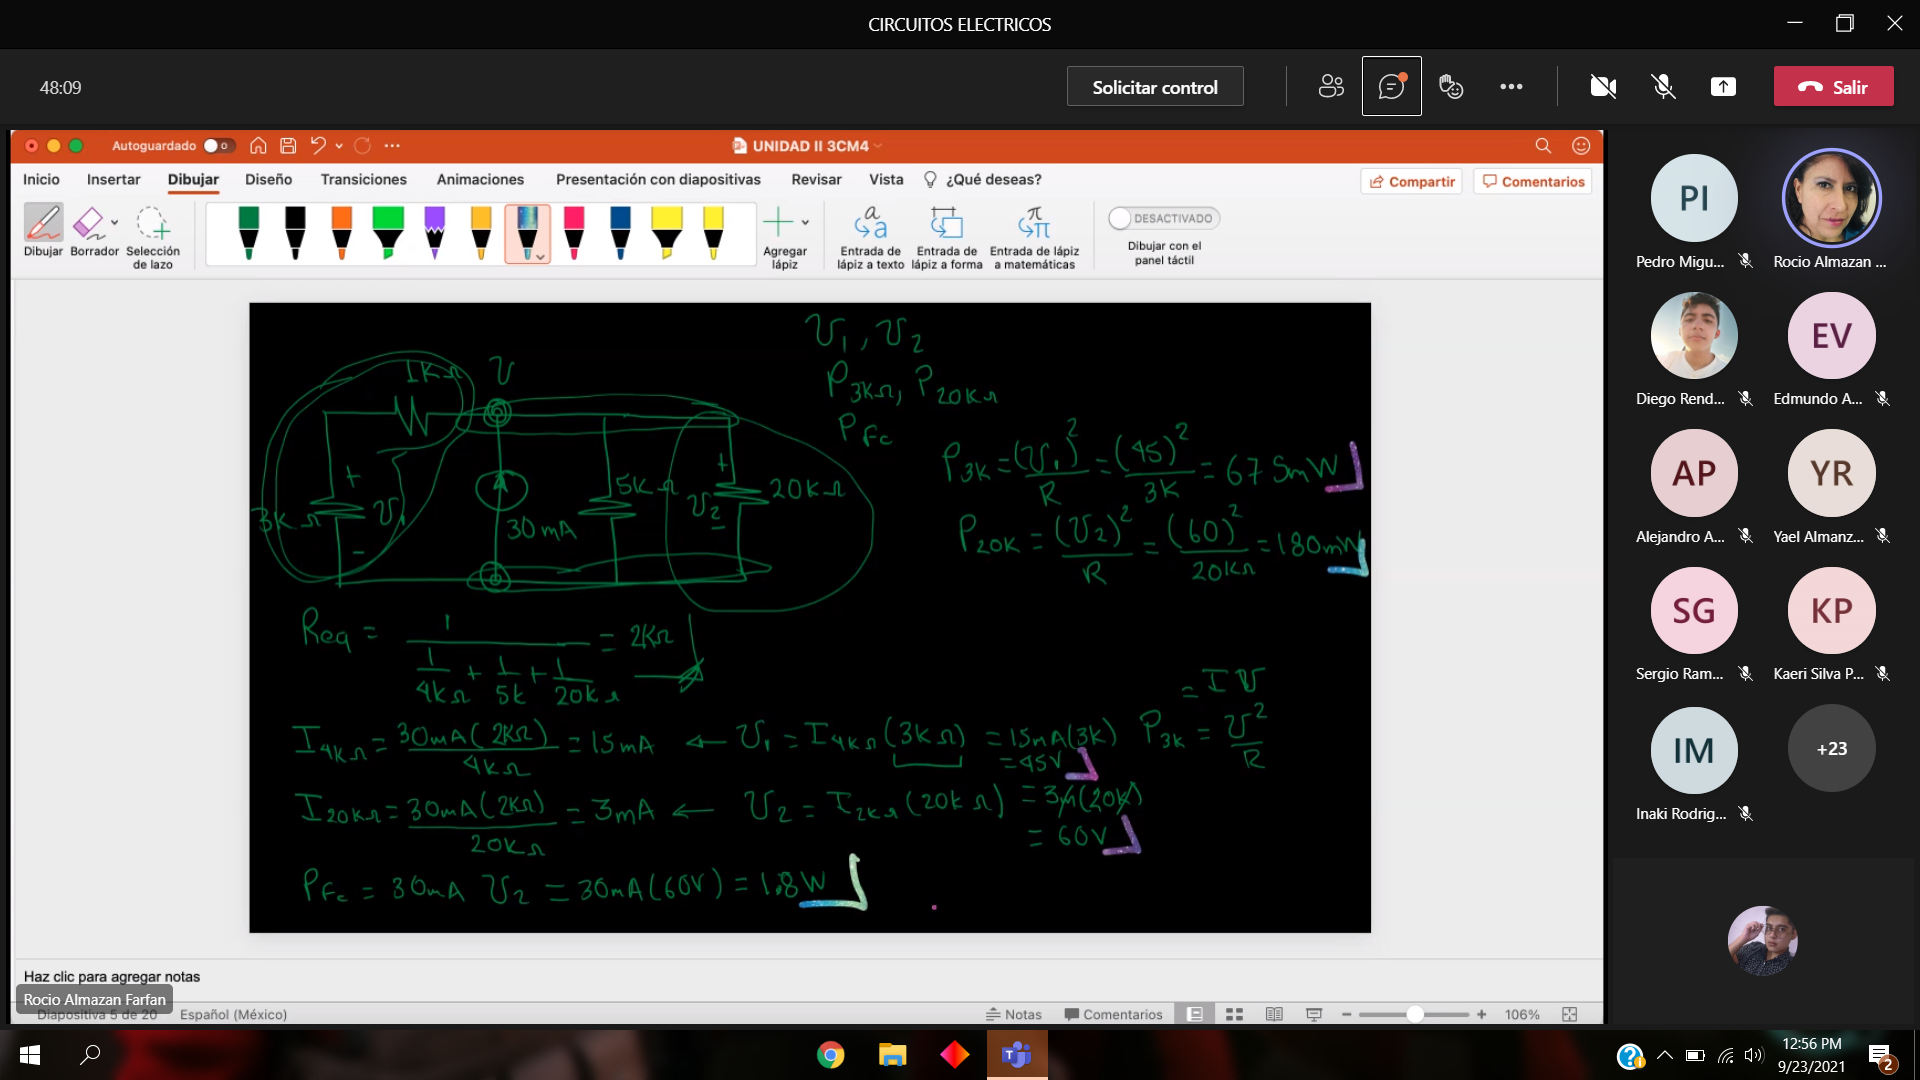 CIRCUITOS ELECTRICOS
48:09
Solicitar control
Salir
Autoguardado
UNIDAD II 3CM4
Inicio Insertar Dibujar Diseño Transiciones Animaciones Presentación con diapositivas Revisar Vista ¿Qué deseas? Compartir Comentarios
Dibujar Borrador Selección de lazo
Agregar lápiz
Entrada de lápiz a texto
Entrada de lápiz a forma
Entrada de lápiz a matemáticas
DESACTIVADO
Dibujar con el panel táctil
V₁, V₂
P3KΩ, P20KΩ
PFc
1KΩ V
3KΩ + V₁ -
30mA
5KΩ
+ V2
20KΩ
P3K = (V₁)²/R = (45)²/3K = 675mW
P20K = (V2)²/R = (60)²/20KΩ = 180mW
Req = 1/(1/4KΩ + 1/5K + 1/20KΩ) = 2KΩ
I4KΩ = 30mA(2KΩ)/4KΩ = 15mA ← V₁ = I4KΩ(3KΩ) = 15mA(3K)
= 45V
= IV
P3K = V²/R
I20KΩ = 30mA(2KΩ)/20KΩ = 3mA ← V2 = I2KΩ(20KΩ) = 3m(20K)
= 60V
PFc = 30mA V2 = 30mA(60V) = 1.8W
Haz clic para agregar notas
Rocio Almazan Farfan
Diapositiva 5 de 20 Español (México) Notas Comentarios 106%
PI
Pedro Migu...
Rocio Almazan ...
Diego Rend...
EV
Edmundo A...
AP
Alejandro A...
YR
Yael Almanz...
SG
Sergio Ram...
KP
Kaeri Silva P...
IM
Inaki Rodrig...
+23
12:56 PM
9/23/2021
2